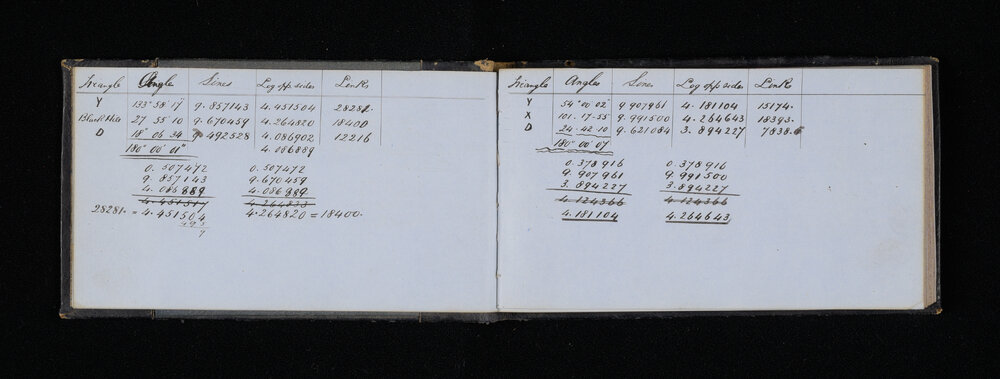 Triangle Angles Sines Log opp. sides Links
Y 133° 58' 17" 9.857143 4.451504 28281.
Black Hill 27 55 10 9.670459 4.264820 18400
D 18° 06 34 9.492528 4.086902 12216
180° 00' 01" 4.086889
0.507472 0.507472
9.857143 9.670459
4.086889 4.086889
4.451517 4.264833
28281. = 4.451504 4.264820 = 18400.
495
9
Triangle Angles Sines Log opp sides Links
Y 54° 00' 02" 9.907961 4.181104 15174.
X 101.17.55 9.991500 4.264643 18393.
D 24.42.10 9.621084 3.894227 7838.
180° 00' 07
0.378916 0.378916
9.907961 9.991500
3.894227 3.894227
4.124366 4.124366
4.181104 4.264643